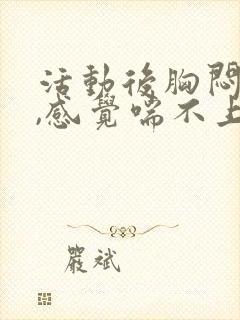 活動後胸悶
,感覺喘不上
嚴斌